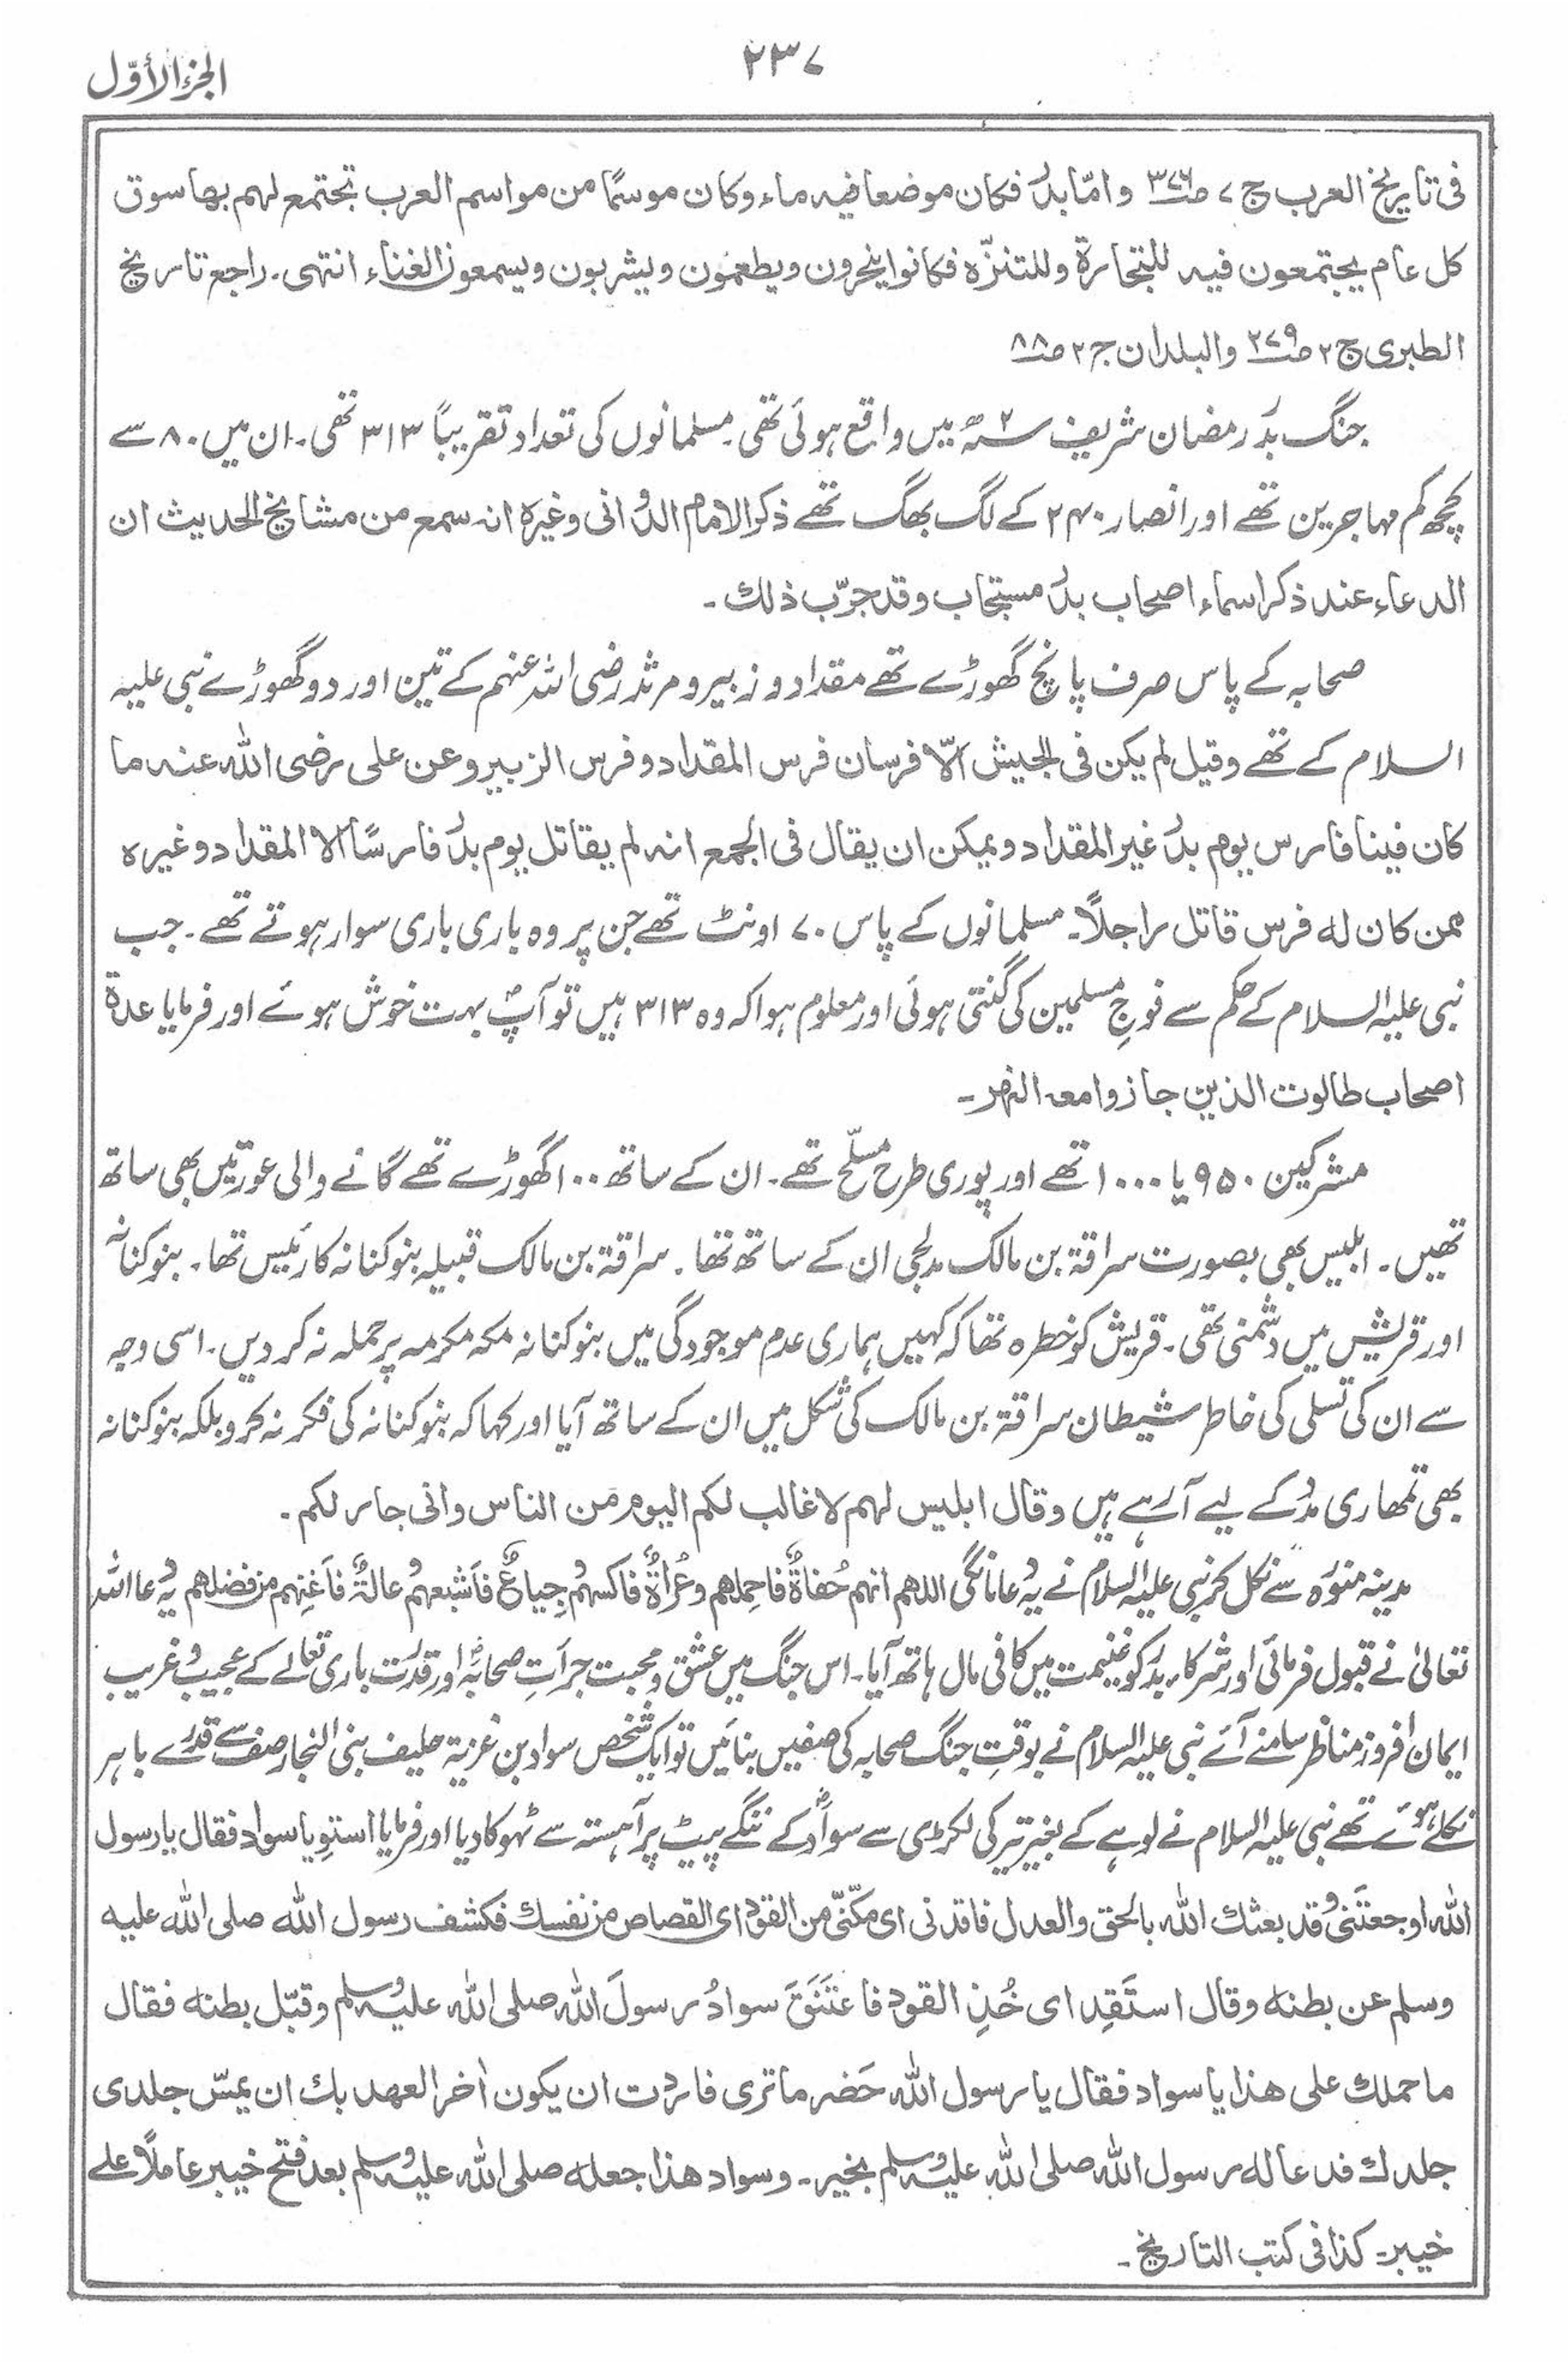 ۲۳۷
الجزء الأوّل
فی تاریخ العرب ج ۷ ص۳۷۶ وامّا بدر فکان موضعا فیہ ماء وکان موسمًا من مواسم العرب تجتمع لہم بھا سوق
کل عام یجتمعون فیہ للتجارۃ وللتنزّہ فکانوا ینحرون ویطعمون ویشربون ویسمعون الغناء انتہی۔ راجع تاریخ
الطبری ج۲ ص۲۷۹ والبلدان ج۲ ص۸۸
جنگ بدر رمضان شریف ۲ سنہ میں واقع ہوئی تھی۔ مسلمانوں کی تعداد تقریباً ۳۱۳ تھی۔ ان میں ۸۰ سے
کچھ کم مہاجرین تھے اور انصار ۲۴۰ کے لگ بھگ تھے ذکر الامام الدوانی وغیرہ انہ سمع من مشایخ الحدیث ان
الدعاء عند ذکر اسماء اصحاب بدر مستجاب وقد جرّب ذلك۔
صحابہ کے پاس صرف پانچ گھوڑے تھے مقداد و زبیر و مرثد رضی اللہ عنہم کے تین اور دو گھوڑے نبی علیہ
السلام کے تھے وقیل لم یکن فی الجیش الّا فرسان فرس المقداد وفرس الزبیر وعن علی رضی اللہ عنہ ما
کان فینا فارس یوم بدر غیر المقداد ویمکن ان یقال فی الجمع انہ لم یقاتل یوم بدر فارسًا الا المقداد وغیرہ
ممن کان لہ فرس قاتل راجلًا۔ مسلمانوں کے پاس ۷۰ اونٹ تھے جن پر وہ باری باری سوار ہوتے تھے۔ جب
نبی علیہ السلام کے حکم سے فوجِ مسلمین کی گنتی ہوئی اور معلوم ہوا کہ وہ ۳۱۳ ہیں تو آپؐ بہت خوش ہوئے اور فرمایا عدۃ
اصحاب طالوت الذین جازوا معہ النہر۔
مشرکین ۹۵۰ یا ۱۰۰۰ تھے اور پوری طرح مسلّح تھے۔ ان کے ساتھ ۱۰۰ گھوڑے تھے گانے والی عورتیں بھی ساتھ
تھیں۔ ابلیس بھی بصورت سراقۃ بن مالک مدلجی ان کے ساتھ تھا۔ سراقۃ بن مالک قبیلہ بنوکنانہ کا رئیس تھا۔ بنوکنانہ
اور قریش میں دشمنی تھی۔ قریش کو خطرہ تھا کہ کہیں ہماری عدم موجودگی میں بنوکنانہ مکہ مکرمہ پر حملہ نہ کر دیں۔ اسی وجہ
سے ان کی تسلی کی خاطر شیطان سراقۃ بن مالک کی شکل میں ان کے ساتھ آیا اور کہا کہ بنوکنانہ کی فکر نہ کرو بلکہ بنوکنانہ
بھی تمھاری مدد کے لیے آرہے ہیں وقال ابلیس لہم لا غالب لکم الیوم من الناس وانی جار لکم۔
مدینہ منورہ سے نکل کر نبی علیہ السلام نے یہ دعا مانگی اللہم انہم حُفاۃٌ فاحملہم وعُراۃٌ فاکسہم وجیاعٌ فاَشبعہم وعالۃٌ فاَغنِہم من فضلک یہ دعا اللہ
تعالیٰ نے قبول فرمائی اور شرکاء بدر کو غنیمت میں کافی مال ہاتھ آیا۔ اس جنگ میں عشق و محبت جرأتِ صحابہؓ اور قدرت باری تعالےٰ کے عجیب و غریب
ایمان افروز مناظر سامنے آئے نبی علیہ السلام نے بوقتِ جنگ صحابہ کی صفیں بنائیں تو ایک شخص سواد بن غزیۃ حلیف بنی النجار صف سے قدرے باہر
نکلے ہوئے تھے نبی علیہ السلام نے لوہے کے بغیر تیر کی لکڑی سے سوادؓ کے ننگے پیٹ پر آہستہ سے ٹھوکا دیا اور فرمایا استوِ یا سواد فقال یا رسول
اللہ اوجعتَنی وقد بعثك اللہ بالحق والعدل فاقدنی ای مکّنّی من القود ای القصاص من نفسك فکشف رسول اللہ صلی اللہ علیہ
وسلم عن بطنہ وقال استَقِد ای خُذِ القود فاعتَنَقَ سوادُ رسولَ اللہ صلی اللہ علیہ وسلم وقبّل بطنہ فقال
ما حملك علی ھذا یا سواد فقال یا رسول اللہ حَضر ما تری فاردت ان یکون اٰخر العہد بك ان یمسّ جلدی
جلدك فدعا لہ رسول اللہ صلی اللہ علیہ وسلم بخیر۔ وسواد ھذا جعلہ صلی اللہ علیہ وسلم بعد فتح خیبر عاملًا علے
خیبر۔ کذا فی کتب التاریخ۔